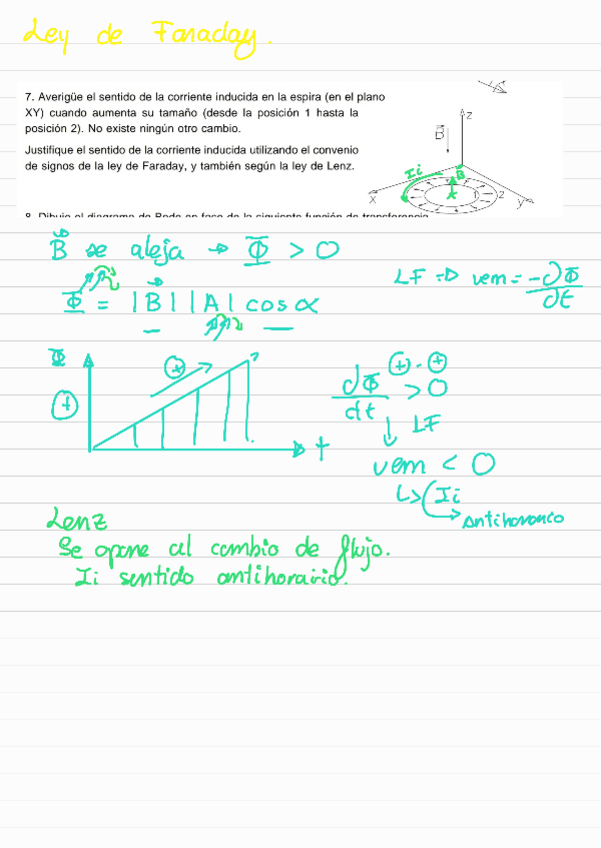 Ley de Faraday.
7. Averigüe el sentido de la corriente inducida en la espira (en el plano
XY) cuando aumenta su tamaño (desde la posición 1 hasta la
posición 2). No existe ningún otro cambio.
Justifique el sentido de la corriente inducida utilizando el convenio
de signos de la ley de Faraday, y también según la ley de Lenz.
Z
B
Ii
B
1
2
X
Y
8. Dibuje el diagrama de Bode en fase de la siguiente función de transferencia
B se aleja → Φ > 0
LF => vem = -dΦ/dt
Φ = |B| |A| cos α
Φ
+
+
t
+ . +
dΦ/dt > 0
↓ LF
vem < 0
↳ Ii
→ Antihorario
Lenz
Se opone al cambio de flujo.
Ii sentido antihorairio.